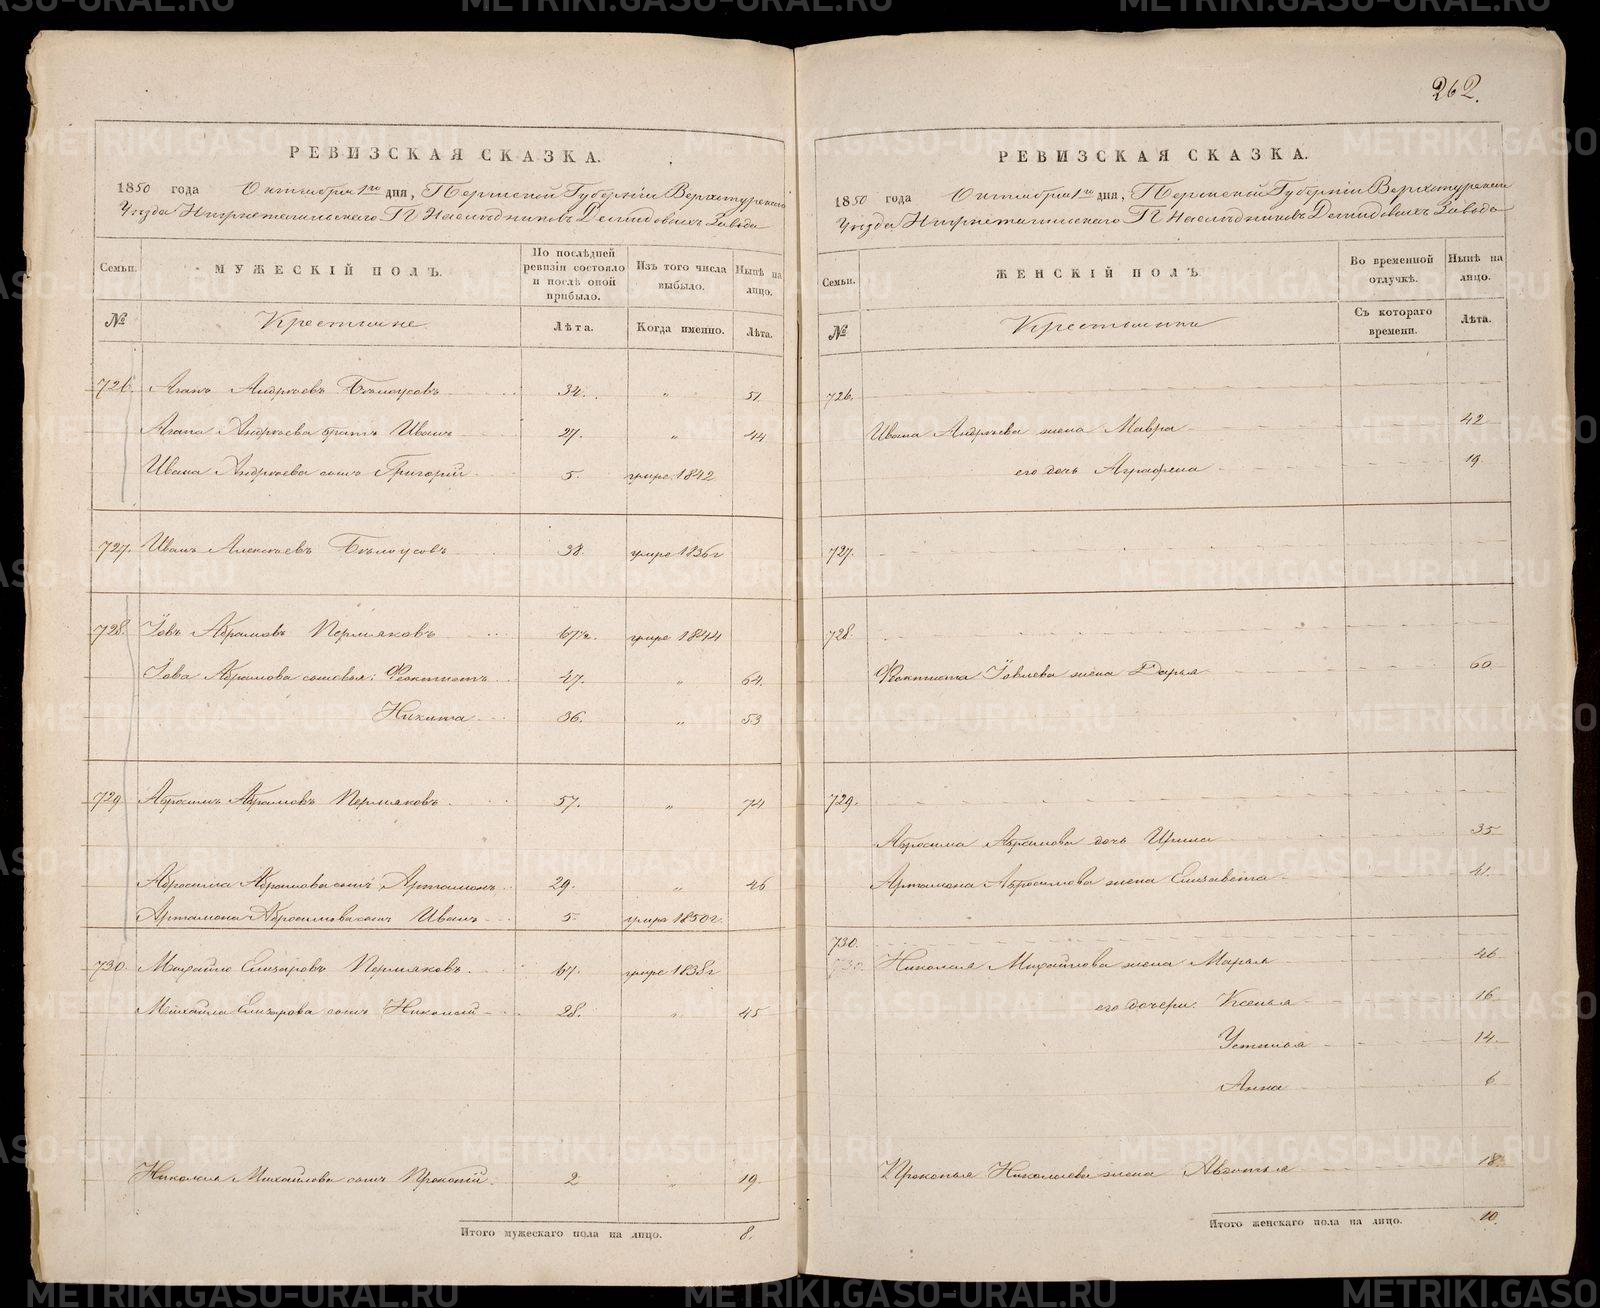 262.
РЕВИЗСКАЯ СКАЗКА.
1850 года Октября 1го дня, Пермской Губерніи Верхотурскаго
Уѣзда Нижнетагильскаго Г.Г. Наслѣдниковъ Демидовыхъ Завода
Семьи. МУЖЕСКІЙ ПОЛЪ. По послѣдней ревизіи состояло и послѣ оной прибыло. Изъ того числа выбыло. Нынѣ на лицо.
№ Крестьяне Лѣта. Когда именно. Лѣта.
726. Агапъ Андреевъ Бѣлоусовъ 34. " 51.
Агапа Андреева братъ Иванъ 27. " 44
Ивана Андреева сынъ Григорій 5. умре 1842
727. Иванъ Алексѣевъ Бѣлоусовъ 38. умре 1836г
728. Іовъ Абрамовъ Пермяковъ 67. умре 1844
Іова Абрамова сыновья: Феоктистъ 47. " 64.
Никита 36. " 53
729. Абросимъ Абрамовъ Пермяковъ. 57. " 74
Абросима Абрамова сынъ Артамонъ 29. " 46
Артамона Абросимова сынъ Иванъ 5 умре 1850г.
730. Михайло Елизаровъ Пермяковъ. 67. умре 1838г
Михайла Елизарова сынъ Николай 28. " 45
Николая Михайлова сынъ Прокопій. 2 " 19.
Итого мужескаго пола на лицо. 8.
РЕВИЗСКАЯ СКАЗКА.
1850 года Октября 1го дня, Пермской Губерніи Верхотурскаго
Уѣзда Нижнетагильскаго Г.Г. Наслѣдниковъ Демидовыхъ Завода
Семьи. ЖЕНСКІЙ ПОЛЪ. Во временной отлучкѣ. Нынѣ на лицо.
№ Крестьянки Съ котораго времени. Лѣта.
726.
Ивана Андреева жена Мавра 42
его дочь Аграфена 19.
727.
728.
Феоктиста Іовлева жена Дарья 60
729.
Абросима Абрамова дочь Ирина 35
Артамона Абросимова жена Елизавета 41.
730.
Николая Михайлова жена Марья 46
его дочери: Ксенья 16
Устинья 14
Анна 6
Прокопья Николаева жена Авдотья 18
Итого женскаго пола на лицо. 10.
METRIKI.GASO-URAL.RU